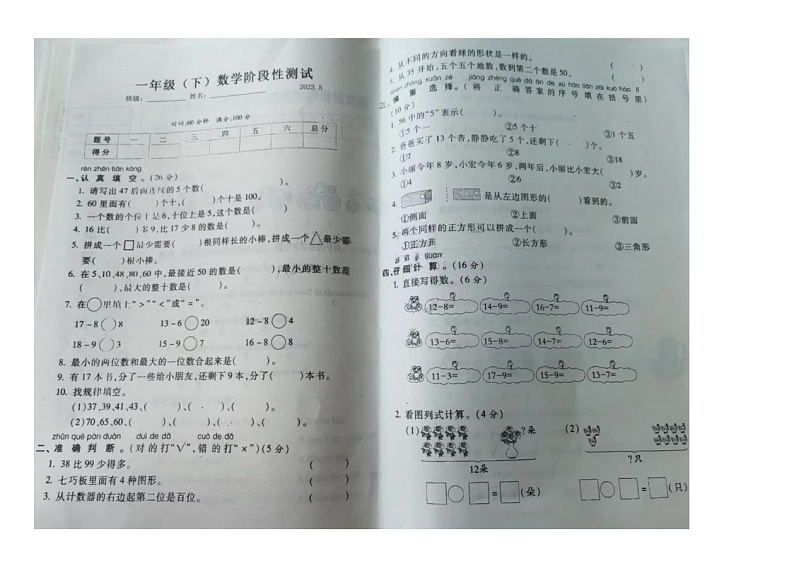 一年级（下）数学阶段性测试
2023.5
班级：______ 姓名：______
时间:60分钟 满分:100分
题号 一 二 三 四 五 六 总分
得分
rèn zhēn tián kòng
一、认真填空。(26分)
1. 请写出47后面连续的5个数( )。
2. 60里面有( )个十,( )个十是100。
3. 一个数的个位上是6,十位上是5,这个数是( )。
4. 16比( )多9,比17少8的数是( )。
5. 拼成一个□最少需要( )根同样长的小棒,拼成一个△最少需
要( )根小棒。
6. 在5、10、48、80、60中,最接近50的数是( ),最小的整十数是
( ),最大的整十数是( )。
7. 在○里填上“>”“<”或“=”。
17-8○8 13-6○20 12-8○4
18-9○3 15-9○7 16-8○8
8. 最小的两位数和最大的一位数合起来是( )。
9. 有17本书,分了一些给小朋友,还剩下9本,分了( )本书。
10. 找规律填空。
(1)37,39,41,43,( )、( )、( )。
(2)70,65,60,( )、( )、( )、( )。
zhǔn què pàn duàn duì de dǎ cuò de dǎ
二、准确判断。(对的打“√”,错的打“×”)(5分)
1. 38比99少得多。 ( )
2. 七巧板里面有4种图形。 ( )
3. 从计数器的右边起第二位是百位。 ( )
4. 从不同的方向看球的形状是一样的。 ( )
5. 从35开始,五个五个地数,数到第二个数是50。 ( )
三、慎重选择。(将正确答案的序号填在括号里)
(10分)
1. 56中的“5”表示( )。
①5个一 ②5个十 ③1个五
2. 爸爸买了13个杏,静静吃了5个,还剩下( )个。
①7 ②8 ③18
3. 小丽今年8岁,小宏今年6岁,两年后,小丽比小宏大( )岁。
①4 ②6 ③2
4. 是从左边图形的( )看到的。
①侧面 ②上面 ③前面
5. 两个同样的正方形可以拼成一个( )。
①正方形 ②长方形 ③三角形
四、仔细计算。(16分)
1. 直接写得数。(6分)
12-8= 14-9= 16-7= 11-9=
13-6= 15-8= 14-7= 12-6=
11-3= 17-9= 15-9= 13-7=
2. 看图列式计算。(4分)
(1) ?朵
12朵
□○□=□(朵)
(2)
?只
□○□=□(只)